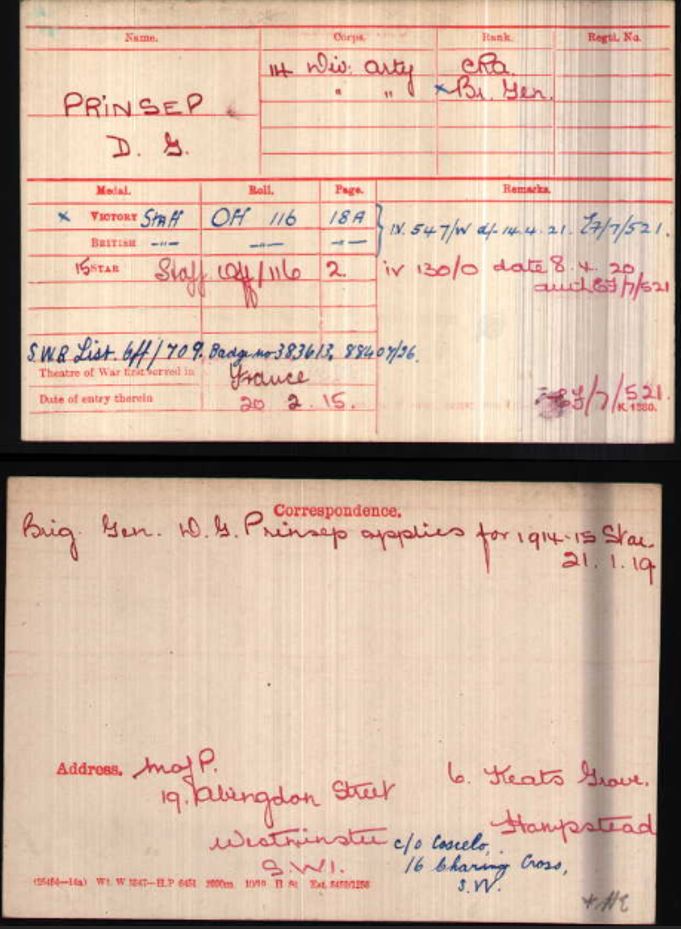 Name. Corps. Rank. Regtl. No.
14 Div. Arty CRA.
" " × Br. Gen.
PRINSEP
D. G.
Medal. Roll. Page. Remarks.
× VICTORY Staff Off 116 18A } IV. 547/W d/- 14.4.21. 7/7/521.
BRITISH —"— —"— —"—
15 STAR Staff Off/116 2. iv 130/0 date 8.4.20
7/521
S.W.B List. Off/709. Badge no 383613. 88407/26.
Theatre of War first served in France
Date of entry therein 20 2.15. /7/521.
K. 1380.
Correspondence.
Brig. Gen. D. G. Prinsep applies for 1914-15 Star.
21.1.19
Address. Maj P. 6. Keats Grove.
19. Abingdon Street Hampstead
Westminster c/o
S.W1. 16 Charing Cross,
S.W.